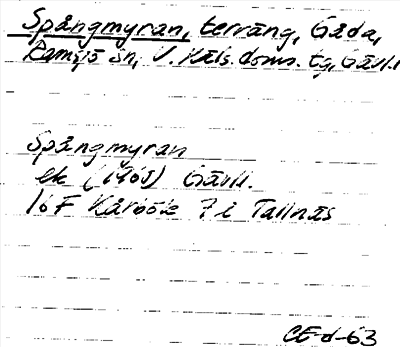 Spångmyran, terräng, Gåda,
Ramsjö sn, V. Häls. doms. tg, Gävl.l
Spångmyran
ek (1965) Gävll.
16F Kårböle 7 i Tallnäs
CE-d-63